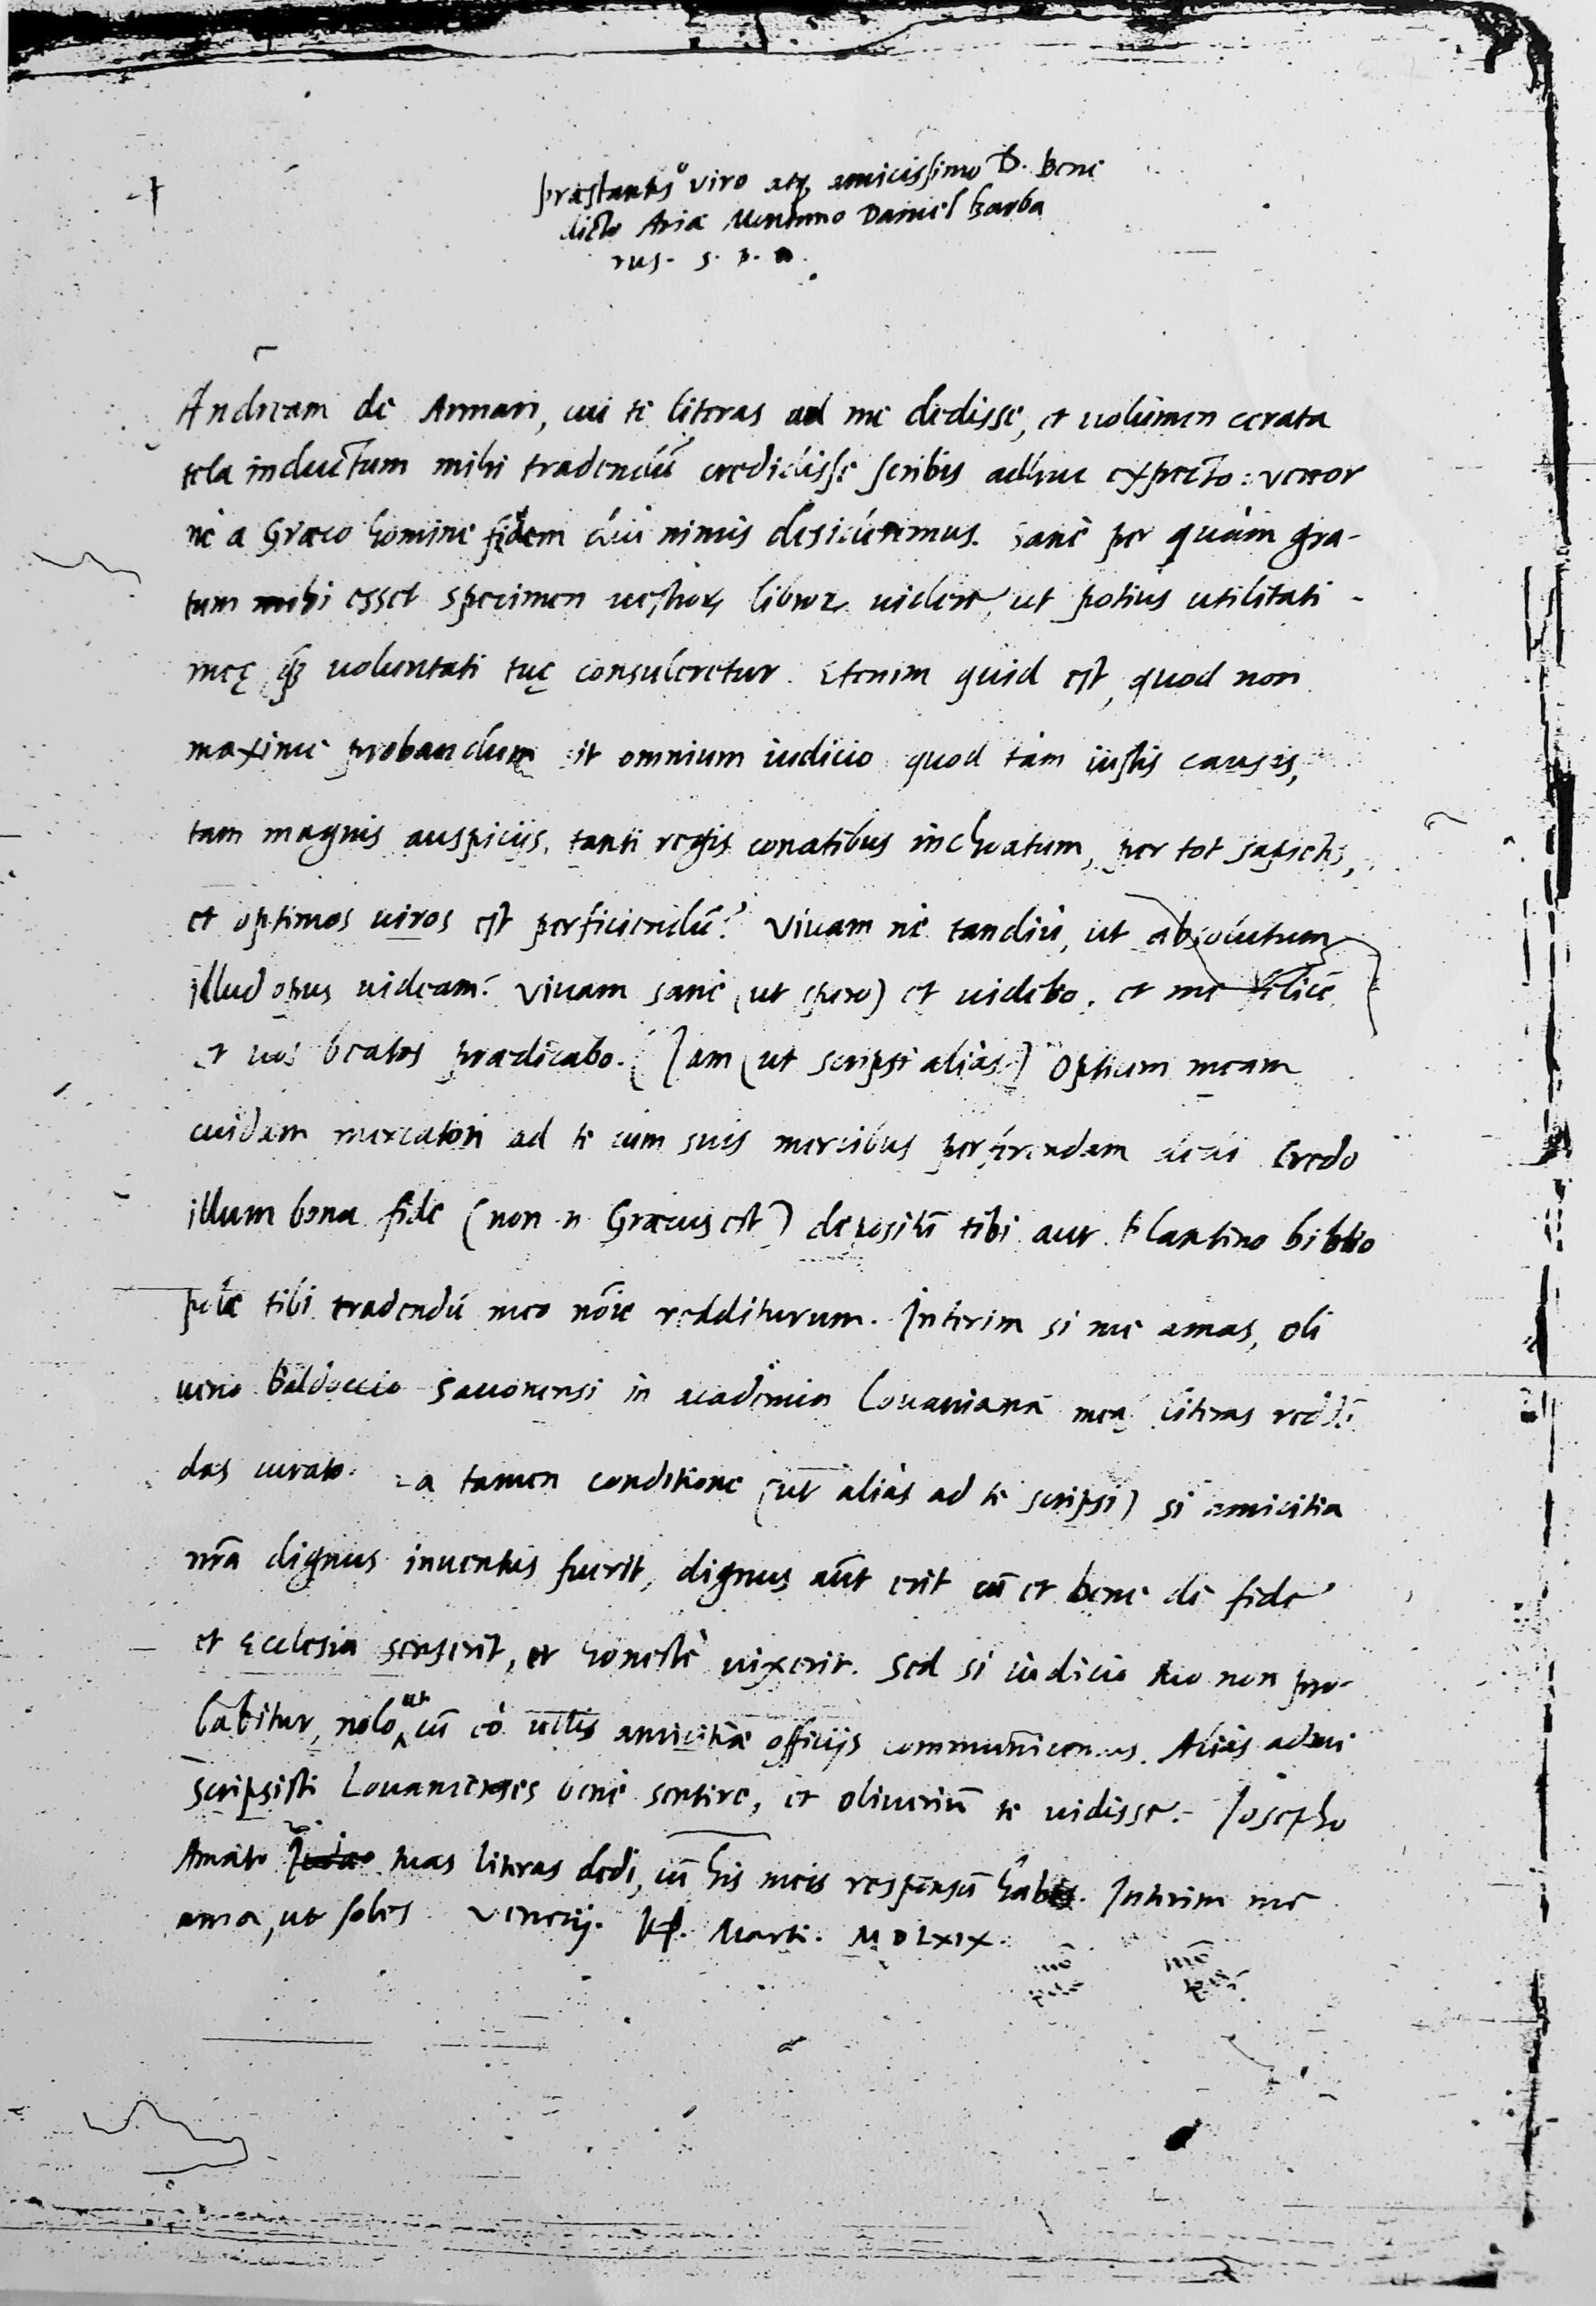 præstantis° viro atq amicissimo D. Bene
dicto Ariæ Montano Daniel Barba
rus. s. p. D.
Andream de Armari, cui te literas ad me dedisse, et uolumen cerata
tela inductum mihi tradendū credidisse scribis adhuc expecto: vereor
nè a Græco homine fidem nimis Sanè per quàm gra-
tum mihi esset specimen uestror libror uidere, ut potius utilitati
meę uoluntati tuę consuleretur. Etenim quid est, quod non
maxime probandum sit omnium iudicio quod tàm iustis causis,
tam magnis auspicijs, tanti regis conatibus inchoatum, per tot
et optimos uiros est perficiendū? Viuam nè tandiù, ut absolutum
illud opus uideam? Viuam sanè (ut spero) et uidebo, et me fęlicē
et uos beatos prædicabo. Iam (ut scripsi aliàs) Opticam meam
cuidam mercatori ad te cum suis mercibus perferendam dedi Credo
illum bona fide (non n. Græcus est) depositū tibi aut Plantino biblio
polæ tibi tradendū meo nōie redditurum. Interim si me amas, Oli
uerio Baldoccio Sauonensi in academia Louaniana meas literas reddē
das curato. Ea tamen conditione (ut aliàs ad te scripsi) si amicitia
nrā dignus inuentus fuerit, dignus aūt erit cū et bene de fide
et Ecclesia senserit, et honestè uixerit. Sed si iudicio tuo non pro-
babitur, nolo ut cū eo ullis amicitiæ officijs communicemus. Aliàs ad me
scripsisti Louanienses benè sentire, et Oliueriū te uidisse. Iosepho
Amato tuas literas dedi, cū his meis responsū habes. Interim me
ama, ut soles. Venetijs. Marti. MDLXIX.